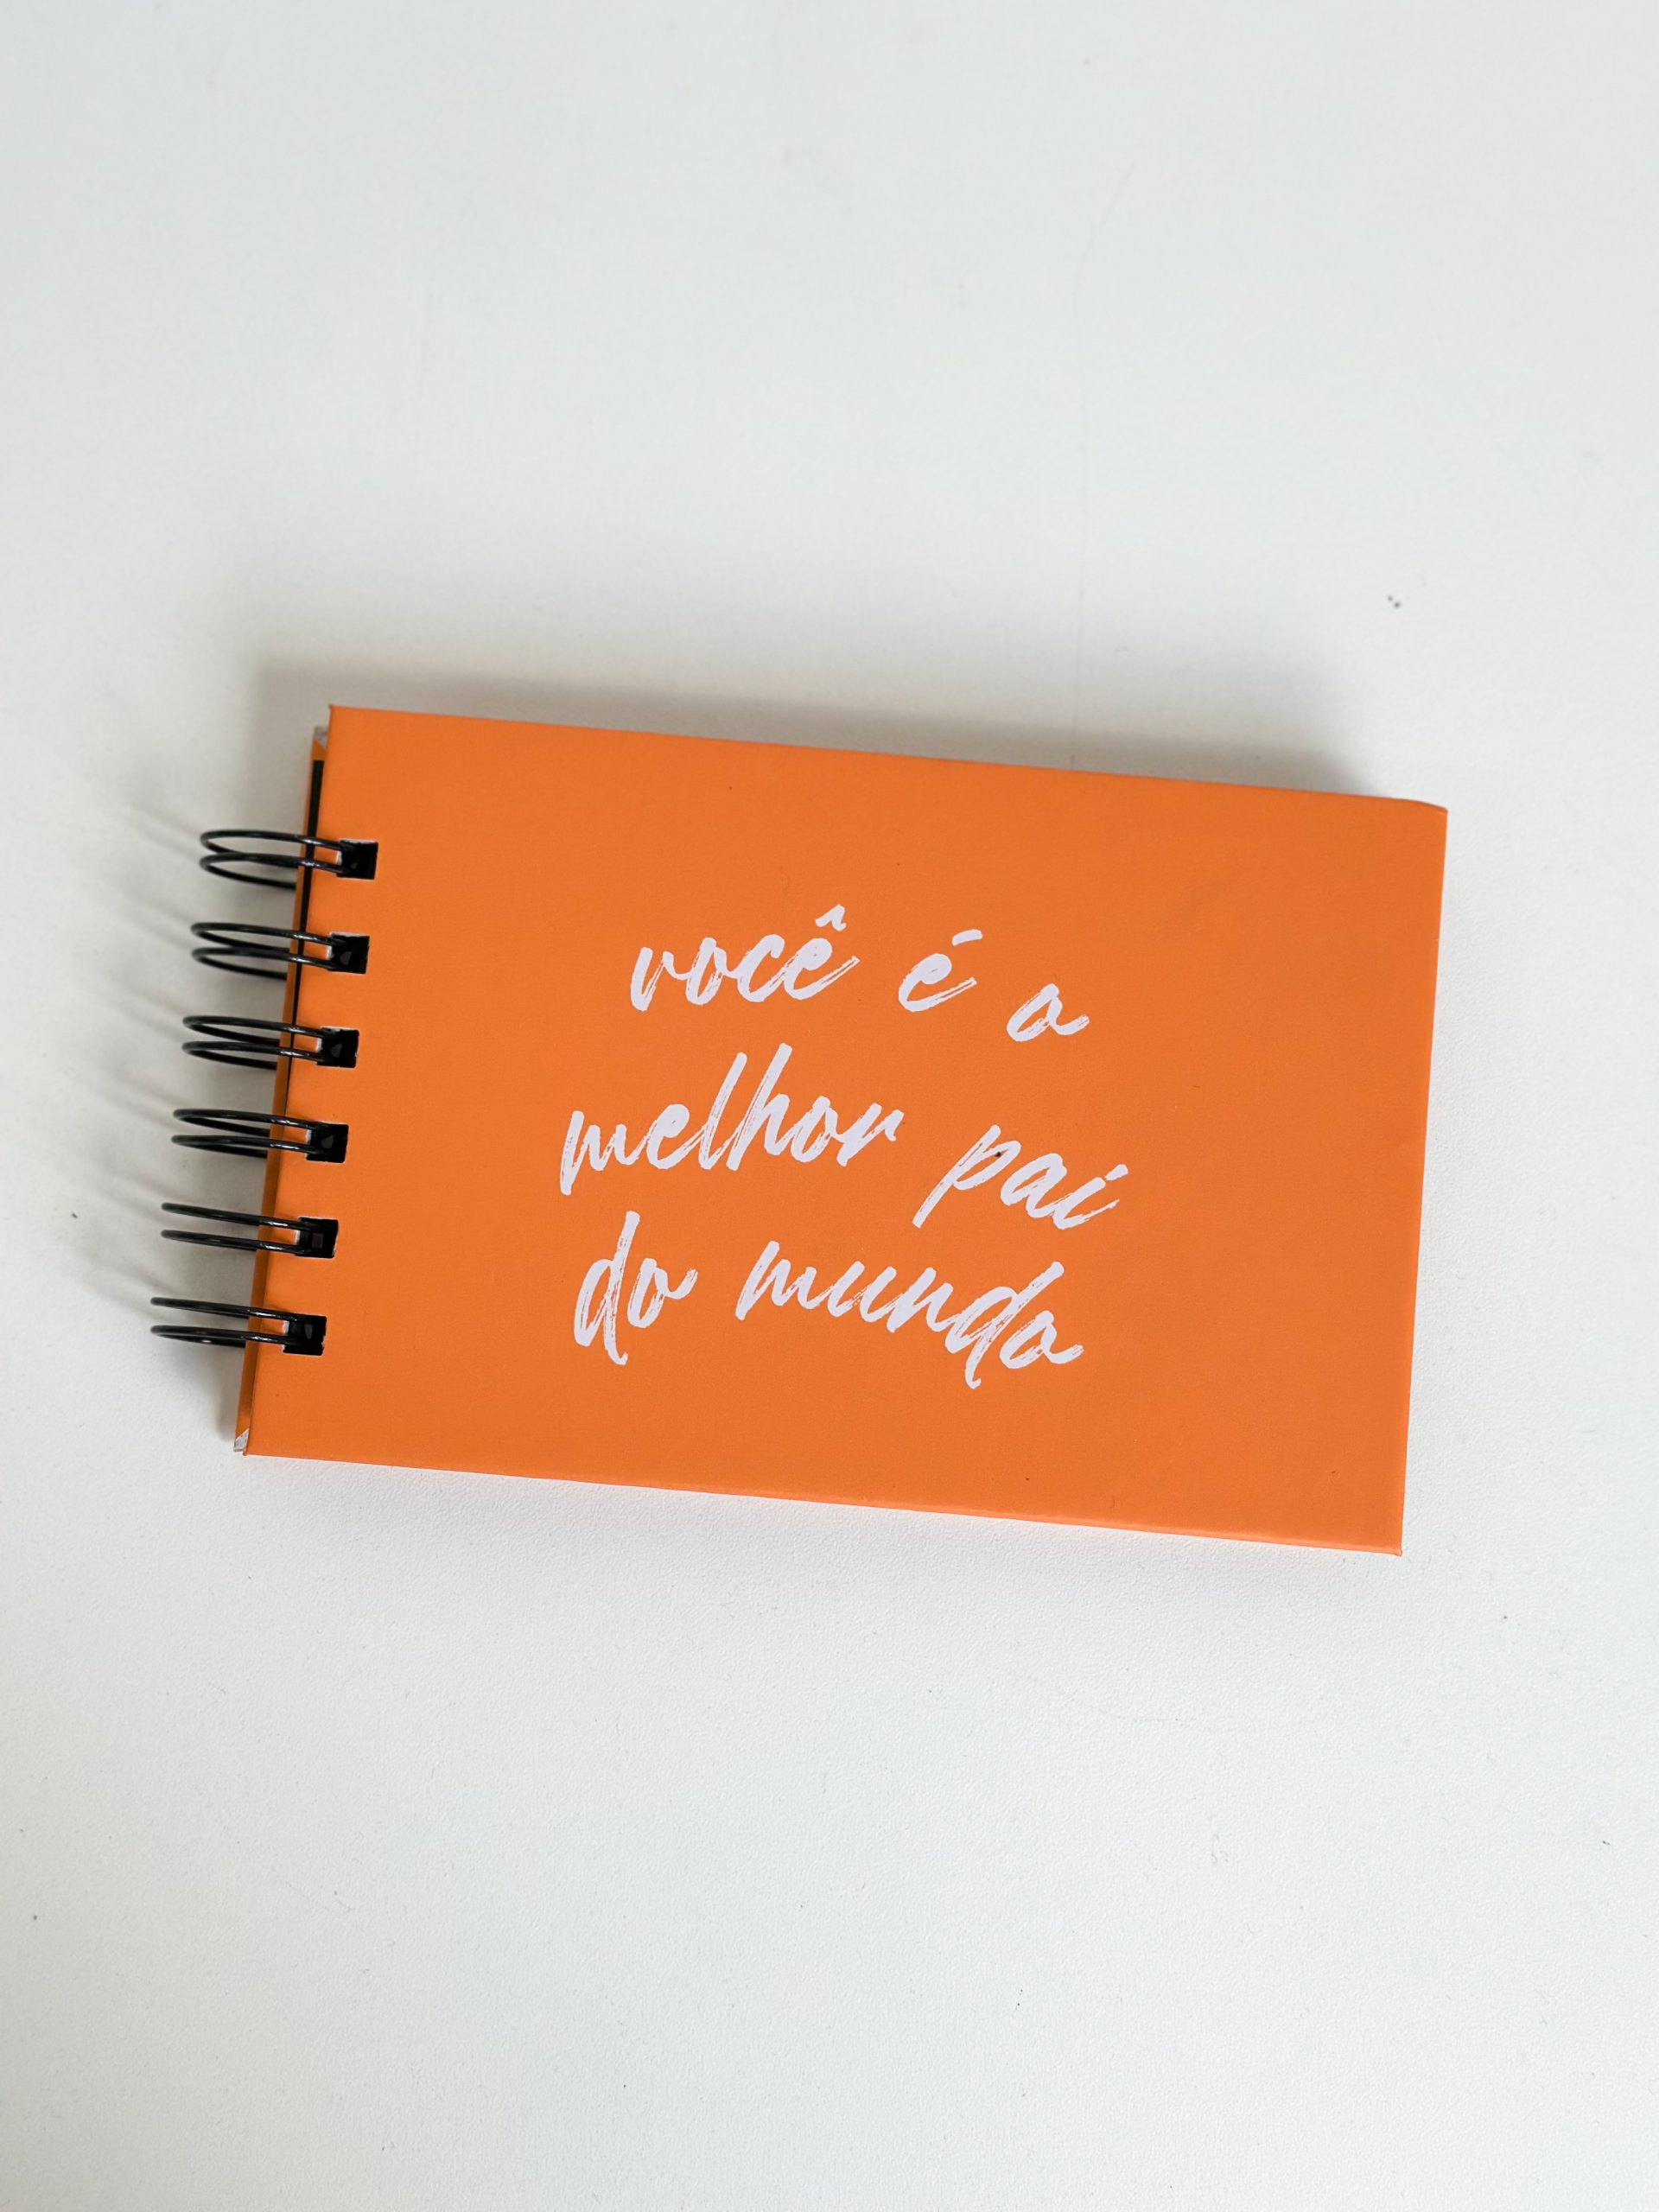 você é o
melhor pai
do mundo